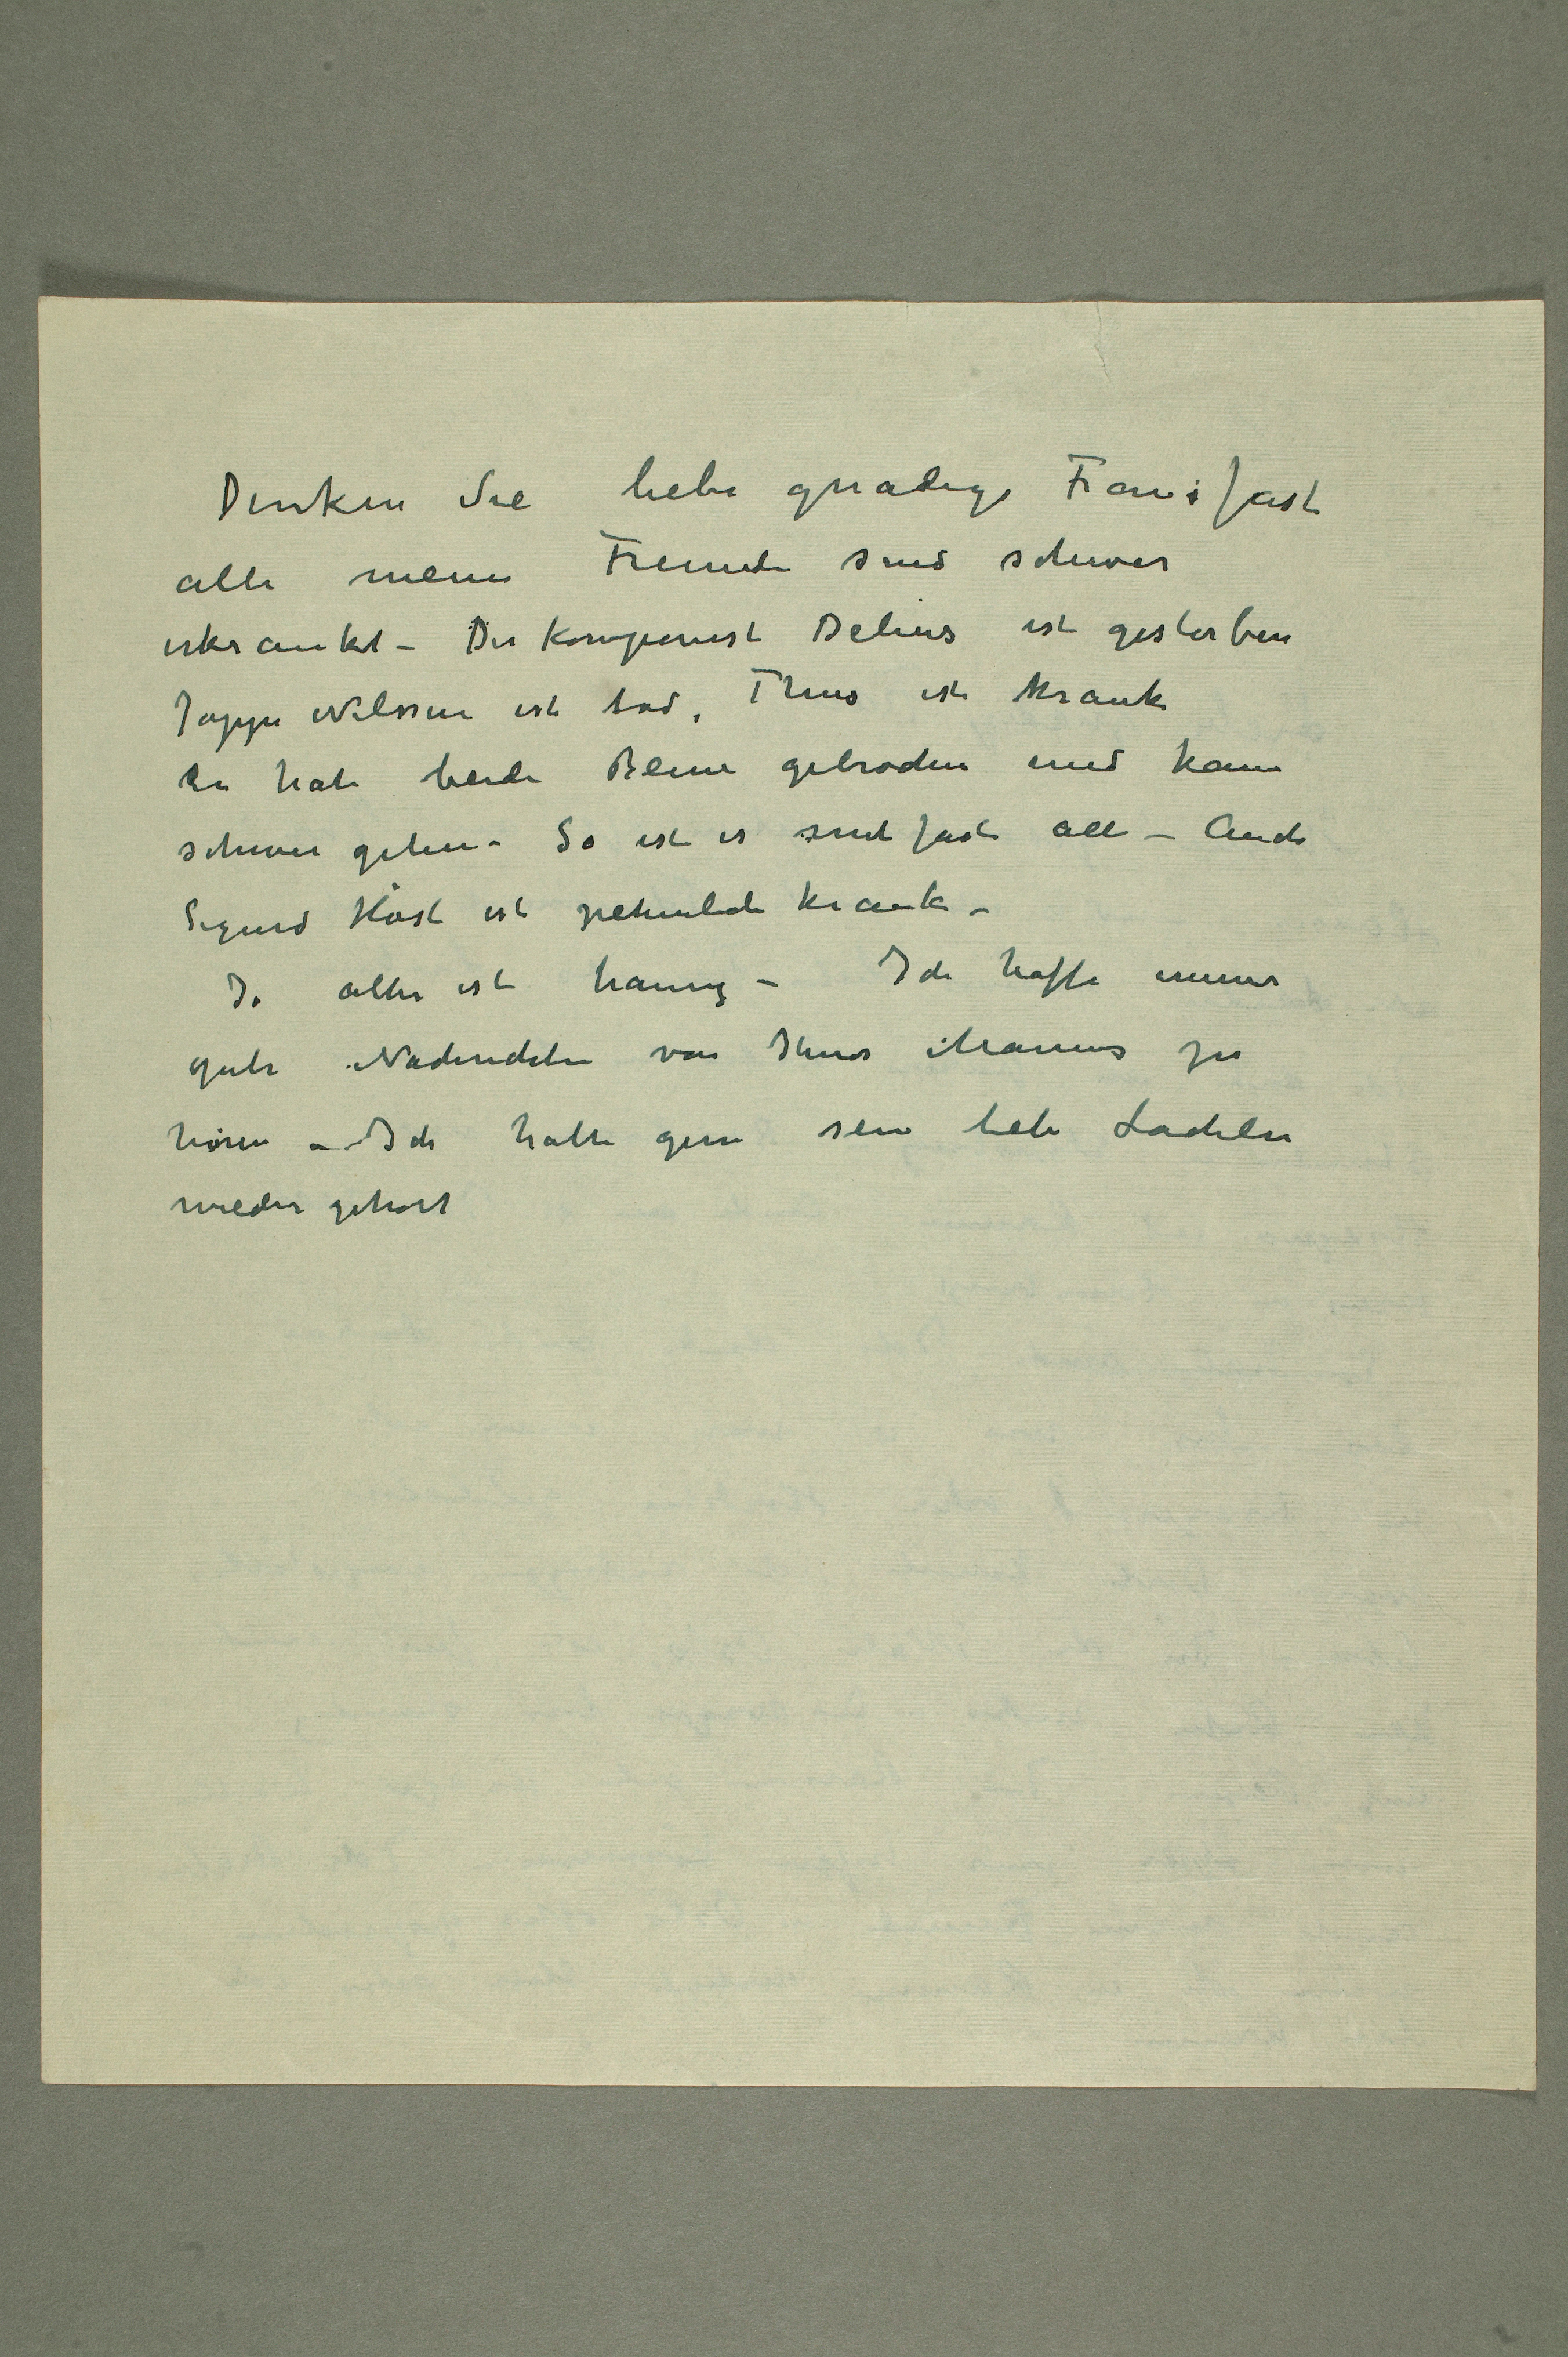 Denken Sie liebe gnädige Frau: fast
alle meine Freunde sind schwer
erkrankt – Der Komponist Delius ist gestorben
Jappe Nilssen ist tod, Thiis ist krank
Er hat beide Beine gebrochen und kann
schwer gehen – So ist es mit fast all – Auch
Sigurd Höst ist ziemlich krank –
Ja alles ist traurig – Ich hoffe immer
gute Nachrichten von Ihres Mannes zu
hören – Ich hätte gern sein liebe Lächeln
wieder gehört